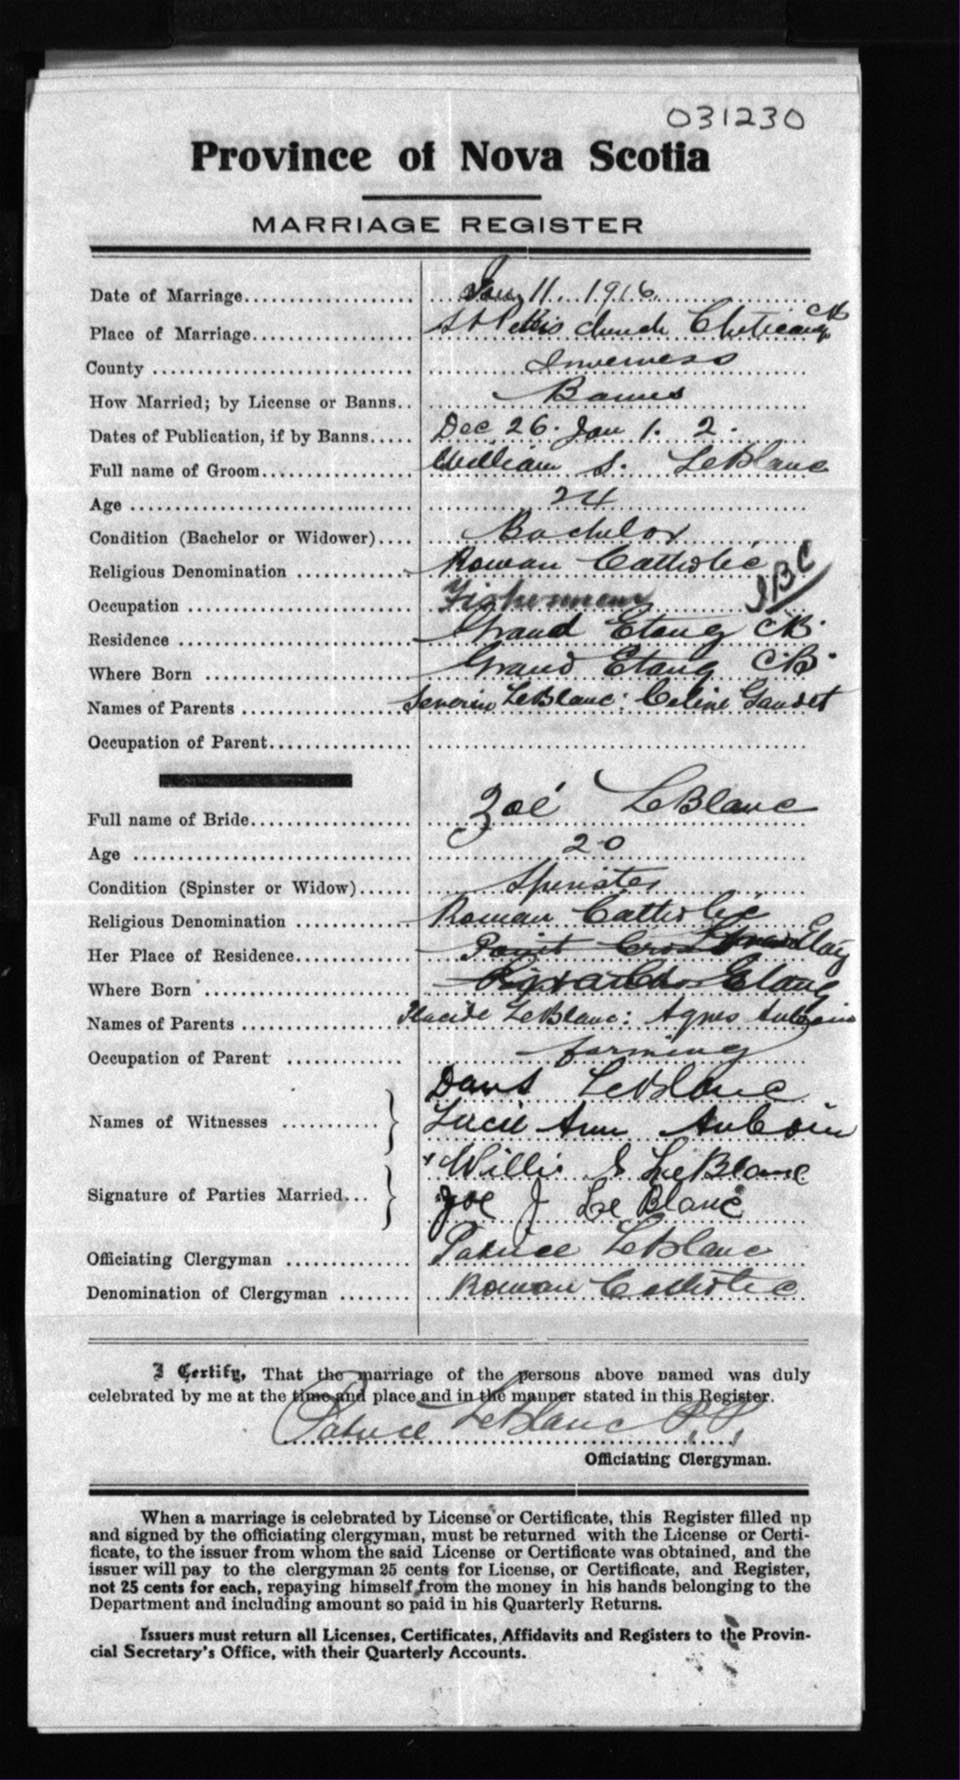 031230
Province of Nova Scotia
MARRIAGE REGISTER
Date of Marriage.................... Jany 11. 1916.
Place of Marriage................... St Peters church Cheticamp CB
County .............................. Inverness
How Married; by License or Banns.. Banns
Dates of Publication, if by Banns..... Dec 26. Jan 1. 2.
Full name of Groom.................. William S. LeBlanc
Age ................................. 24
Condition (Bachelor or Widower).... Bachelor
Religious Denomination .............. Roman Catholic
Occupation .......................... Fisherman JBC
Residence ........................... Grand Etang CB.
Where Born .......................... Grand Etang C.B.
Names of Parents .................... Severin LeBlanc: Celine Gaudet
Occupation of Parent.................
Full name of Bride................... Zoé LeBlanc
Age ................................. 20
Condition (Spinster or Widow)...... Spinster
Religious Denomination .............. Roman Catholic
Her Place of Residence............... Point Cross Grand Etang
Where Born .......................... Etang
Names of Parents .................... Placide LeBlanc: Agnes Aucoin
Occupation of Parent ................ farming
Names of Witnesses ............ LeBlanc
Lucie Ann Aucoin
Signature of Parties Married... Willie S LeBlanc
Zoe J LeBlanc
Officiating Clergyman ............... Patrice LeBlanc
Denomination of Clergyman ........ Roman Catholic
I Certify, That the marriage of the persons above named was duly
celebrated by me at the time and place and in the manner stated in this Register.
Patrice LeBlanc P.P.
Officiating Clergyman.
When a marriage is celebrated by License or Certificate, this Register filled up
and signed by the officiating clergyman, must be returned with the License or Certi-
ficate, to the issuer from whom the said License or Certificate was obtained, and the
issuer will pay to the clergyman 25 cents for License, or Certificate, and Register,
not 25 cents for each, repaying himself from the money in his hands belonging to the
Department and including amount so paid in his Quarterly Returns.
Issuers must return all Licenses, Certificates, Affidavits and Registers to the Provin-
cial Secretary's Office, with their Quarterly Accounts.